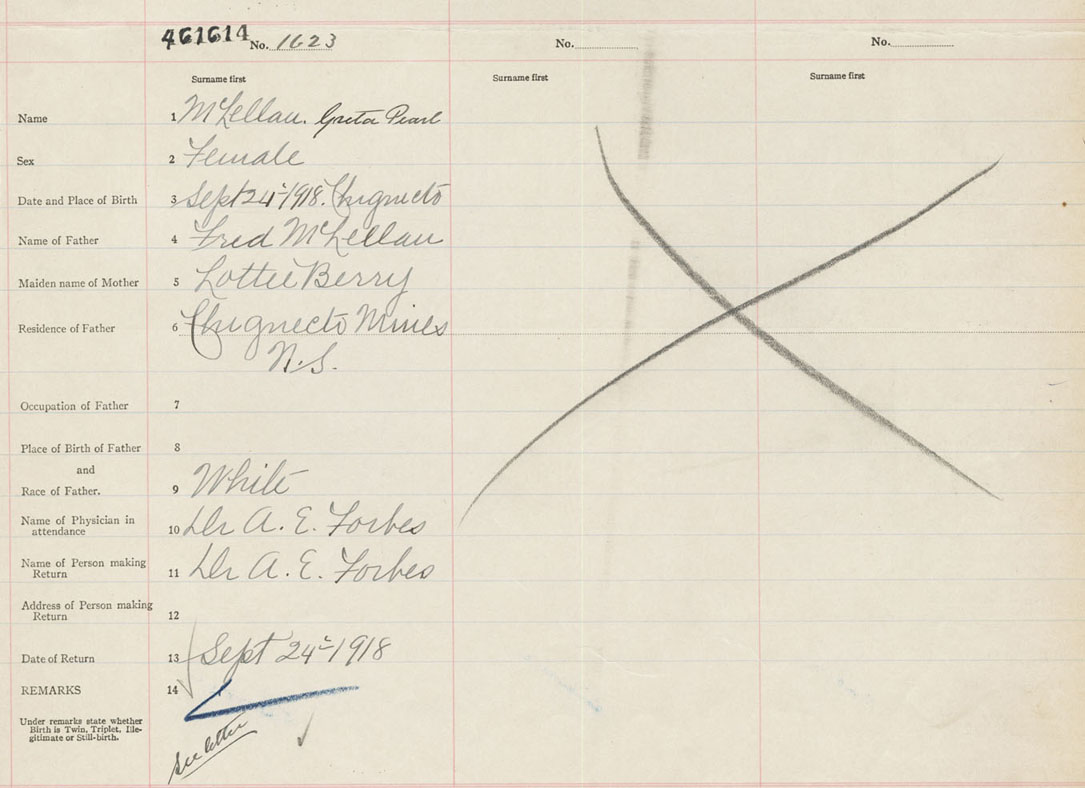 461614 No. 1623 No. No.
Surname first Surname first Surname first
Name 1 McLellan. Greta Pearl
Sex 2 Female
Date and Place of Birth 3 Sept 24th 1918. Chignecto
Name of Father 4 Fred McLellan
Maiden name of Mother 5 Lottie Berry
Residence of Father 6 Chignecto Mines
N.S.
Occupation of Father 7
Place of Birth of Father 8
and
Race of Father. 9 White
Name of Physician in
attendance 10 Dr A. E. Forbes
Name of Person making
Return 11 Dr A. E. Forbes
Address of Person making
Return 12
Date of Return 13 Sept 24th 1918
REMARKS 14
Under remarks state whether
Birth is Twin, Triplet, Ille-
gitimate or Still-birth.
See letter